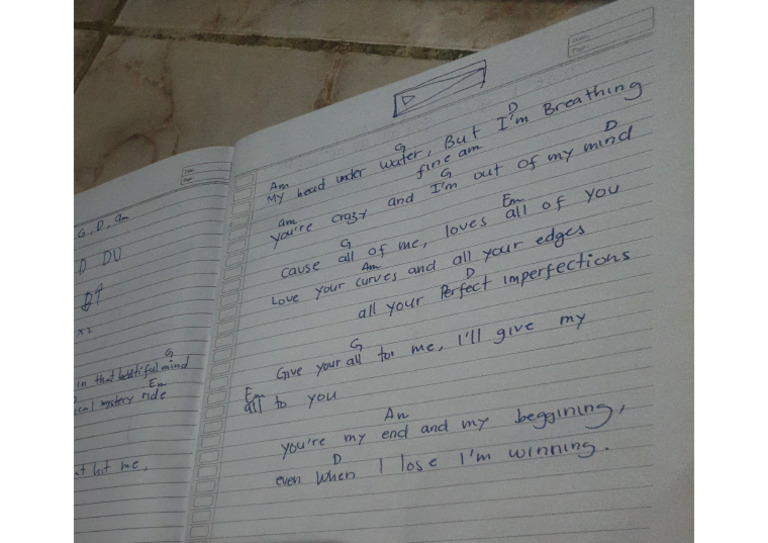 G, D, am
D DU
x2
G
in that beautiful mind
Em
ical mystery ride
t hit me,
G D
Am
My head under water, But I'm Breathing
fine am
am G D
you're crazy and I'm out of my mind
G Em
cause all of me, loves all of you
Am
Love your curves and all your edges
D
all your Perfect imperfections
G
Give your all to me, I'll give my
Em
all to you
Am
you're my end and my beggining,
D
even when I lose I'm winning.